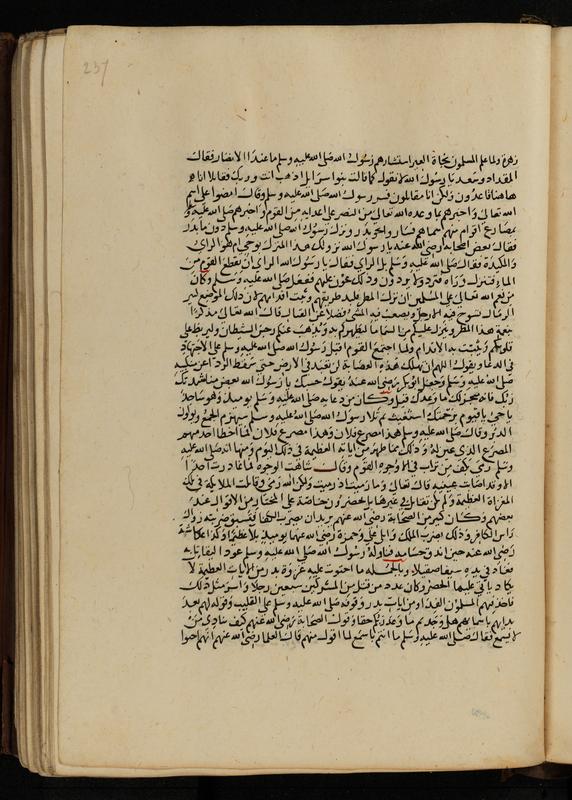 237
زهرة ولما علم المسلمون نجاة العير استشارهم رسول الله صلى الله عليه وسلم ما عندا الانصار فقال
المقداد وسعد يا رسول الله لا نقول كما قالت بنوا سرايل اذهب انت وربك فقاتلا انا ها
هاهنا قاعدون ولكن انا مقاتلون فسر رسول الله صلى الله عليه وسلم وقال امضوا على اسم
الله تعالى واخبرهم بما وعده الله تعالى من النصر على اعدايه من القوم واخبرهم صلى الله عليه وسلم
بمصارع اقوام منهم اسماهم فسار واخوا بدر ونزل رسول الله صلى الله عليه وسلم دون ما بدر
فقال بعض اصحابه رضي الله عنه يا رسول الله نزولك هذا المنزل بوحي ام هو الراي
والمكيدة فقال صلى الله عليه وسلم بل الراي فقال يا رسول الله الراي ان نقطع القوم من
الماء فننزل وراه فنرد ولا يردون وذلك عون عليهم ففعل صلى الله عليه وسلم وكان
من نعم الله تعالى على المسلمين ان نزل المطر فلبد طريقهم وثبت اقدامهم لان ذلك الموضع كثير
الرمال تسوخ فيه الارجل ويصعب فيه المشي فضلا عن القتال قال الله تعالى مذكرا
بنعمة هذا المطر وينزل عليكم من السما ما ليطهركم به ويذهب عنكم رجز الشيطان وليربط على
قلوبكم ويثبت به الاقدام ولما اجتمع القوم اقبل رسول الله صلى الله عليه وسلم على الاجتهاد
في الدعا ويقول اللهم ان تهلك هذه العصابة لن تعبد في الارض حتى سقط الردا عن منكبيه
صلى الله عليه وسلم وجعل ابو بكر رضي الله عنه يقول حسبك يا رسول الله بعض مناشدتك
ربك فانه سينجز لك ما وعدك قيل وكان من دعايه صلى الله عليه وسلم يوميذ وهو ساجد
يا حي يا قيوم برحمتك استغيث ثم تلا رسول الله صلى الله عليه وسلم سيهزم الجمع ويولون
الدبر وقال صلى الله عليه وسلم هذا مصرع فلان وهذا مصرع فلان لما اخطا احد منهم
المصرع الذي عين له وذلك مما ظهر من اياته العظيمة في ذلك اليوم ومنها انه صلى الله عليه
وسلم رمى بكف من تراب في وجوه القوم وقال شاهت الوجوه لما غادرت احدا
الا وقد اصابت عينيه قال تعالى وما رميت اذ رميت ولكن الله رمى وقاتلت الملايكة في تلك
الغزاة العظيمة ولم تكن تقاتل في غيرها بل يحضرون خاصة على المختار من الاقوال عند
بعضهم وكان كبير من الصحابة رضي الله عنهم يريد ان يضرب الكافر فيسبق ضربته زوال
راس الكافر وذلك لضرب الملك وابلى علي وحمزة رضي الله عنهما يوميذ بلا عظيما وكذا عكاشة
رضي الله عنه حين اند وحسامه فناوله رسول الله صلى الله عليه وسلم عودا ليقاتل به
فعاد في يده سيفا صقيلا وبالجملة ما احتوت عليه غزوة بدر من الايات العظيمة لا
يكاد ياتي عليها الحصر وكان عدد من قتل من المشركين سبعين رجلا واسر مثل ذلك
فاخذ منهم المسلمون الفدا ومن ايات بدر وقوفه صلى الله عليه وسلم على القليب وقوله لهم بعد
ندايهم باسمايهم هل وجدتم ما وعد ربكم حقا وقول الصحابة رضي الله عنهم كيف تنادي من
لا يسمع فقال صلى الله عليه وسلم ما انتم باسمع لما اقول منهم قال العلما رضي الله عنهم انهم احيوا